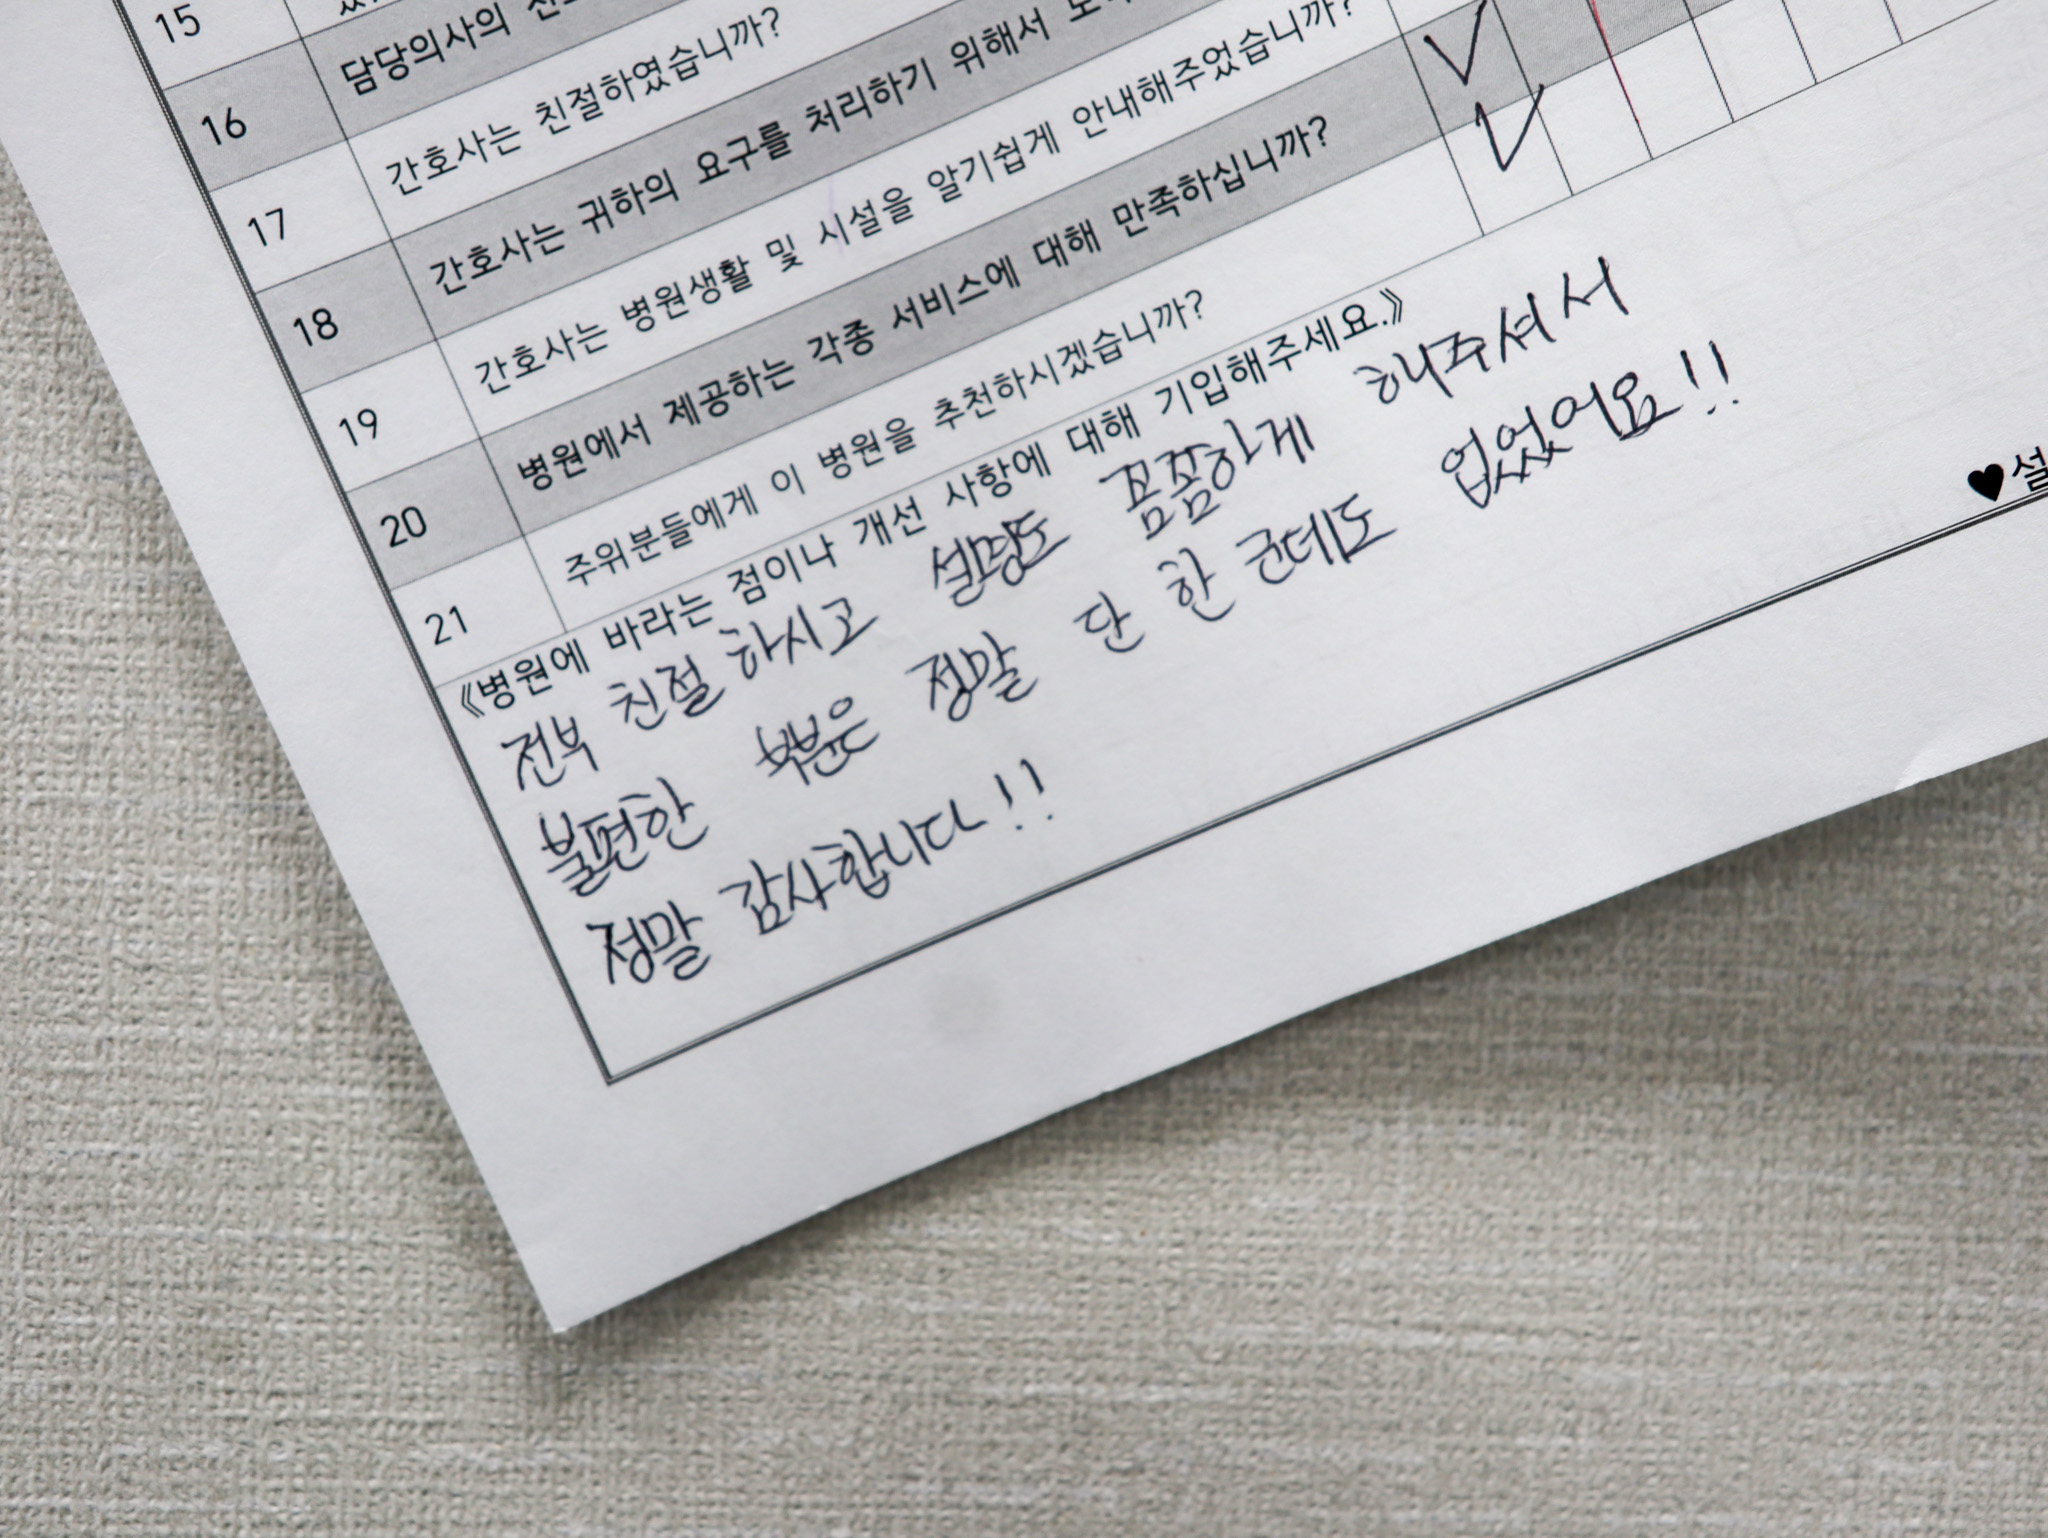 15
16 담당의사의
17 간호사는 친절하였습니까?
18 간호사는 귀하의 요구를 처리하기 위해서
19 간호사는 병원생활 및 시설을 알기쉽게 안내해주었습니까?
20 병원에서 제공하는 각종 서비스에 대해 만족하십니까?
21 주위분들에게 이 병원을 추천하시겠습니까?
《병원에 바라는 점이나 개선 사항에 대해 기입해주세요.》
전부 친절 하시고 설명도 꼼꼼하게 해주셔서
불편한 부분은 정말 단 한 군데도 없었어요!!
정말 감사합니다!!
♥설